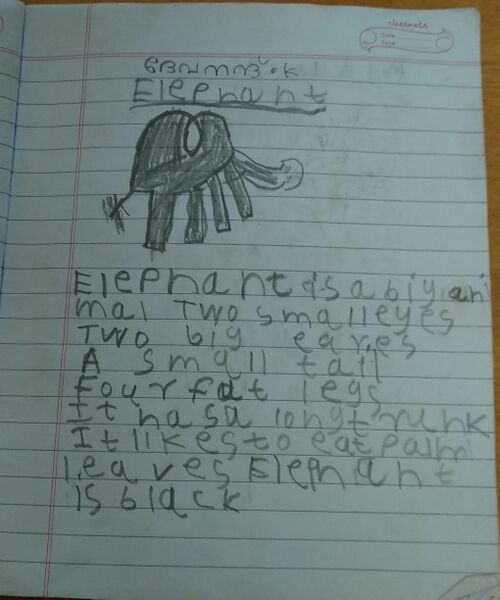 classmate
Date
Page
ദേവനന്ദ്.k
Elephant
Elephant is a big ani
mal Two small eyes
Two big eares
A small tail
Four fat legs
It has a long trunk
It likes to eat palm
leaves Elephant
is black